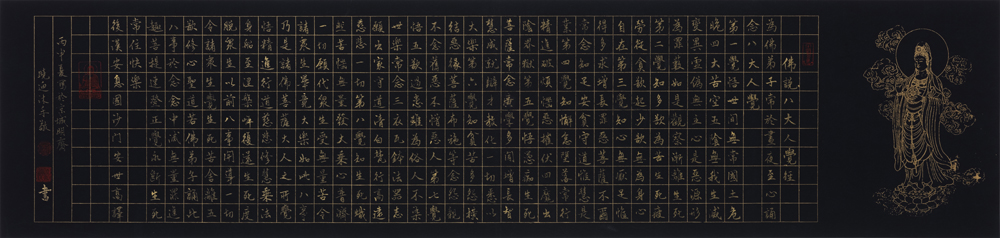 佛說八大人覺經
為佛弟子常於晝夜至心誦
念八大人覺
第一覺悟世間無常國土危
脆四大苦空五陰無我生滅
變異虛偽無主心是惡源形
為罪藪如是觀察漸離生死
第二覺知多欲為苦生死疲
勞從貪欲起少欲無為身心
自在第三覺知心無厭足惟
得多求增長罪惡菩薩不爾
常念知足安貧守道惟慧是
業第四覺知懈怠墜落常行
精進破煩惱惡摧伏四魔出
陰界獄第五覺悟愚癡生死
菩薩常念廣學多聞增長智
慧成就辯才教化一切悉以
大樂第六覺知貧苦多怨橫
結惡緣菩薩布施等念怨親
不念舊惡不憎惡人第七覺
悟五欲過患雖為俗人不染
世樂常念三衣瓦鉢法器志
願出家守道清白梵行高遠
慈悲一切第八覺知生死熾
然苦惱無量發大乘心普濟
一切願代眾生受無量苦令
諸眾生畢竟大樂如此八事
乃是諸佛菩薩大人之所覺
悟精進行道慈悲修慧乘法
身船至涅槃岸復還生死度
脫眾生以前八事開導一切
令諸眾生覺生死苦捨離五
欲修心聖道若佛弟子誦此
八事於念念中滅無量罪進
趣菩提速登正覺永斷生死
常住快樂
後漢安息國沙門安世高譯
丙申夏
書